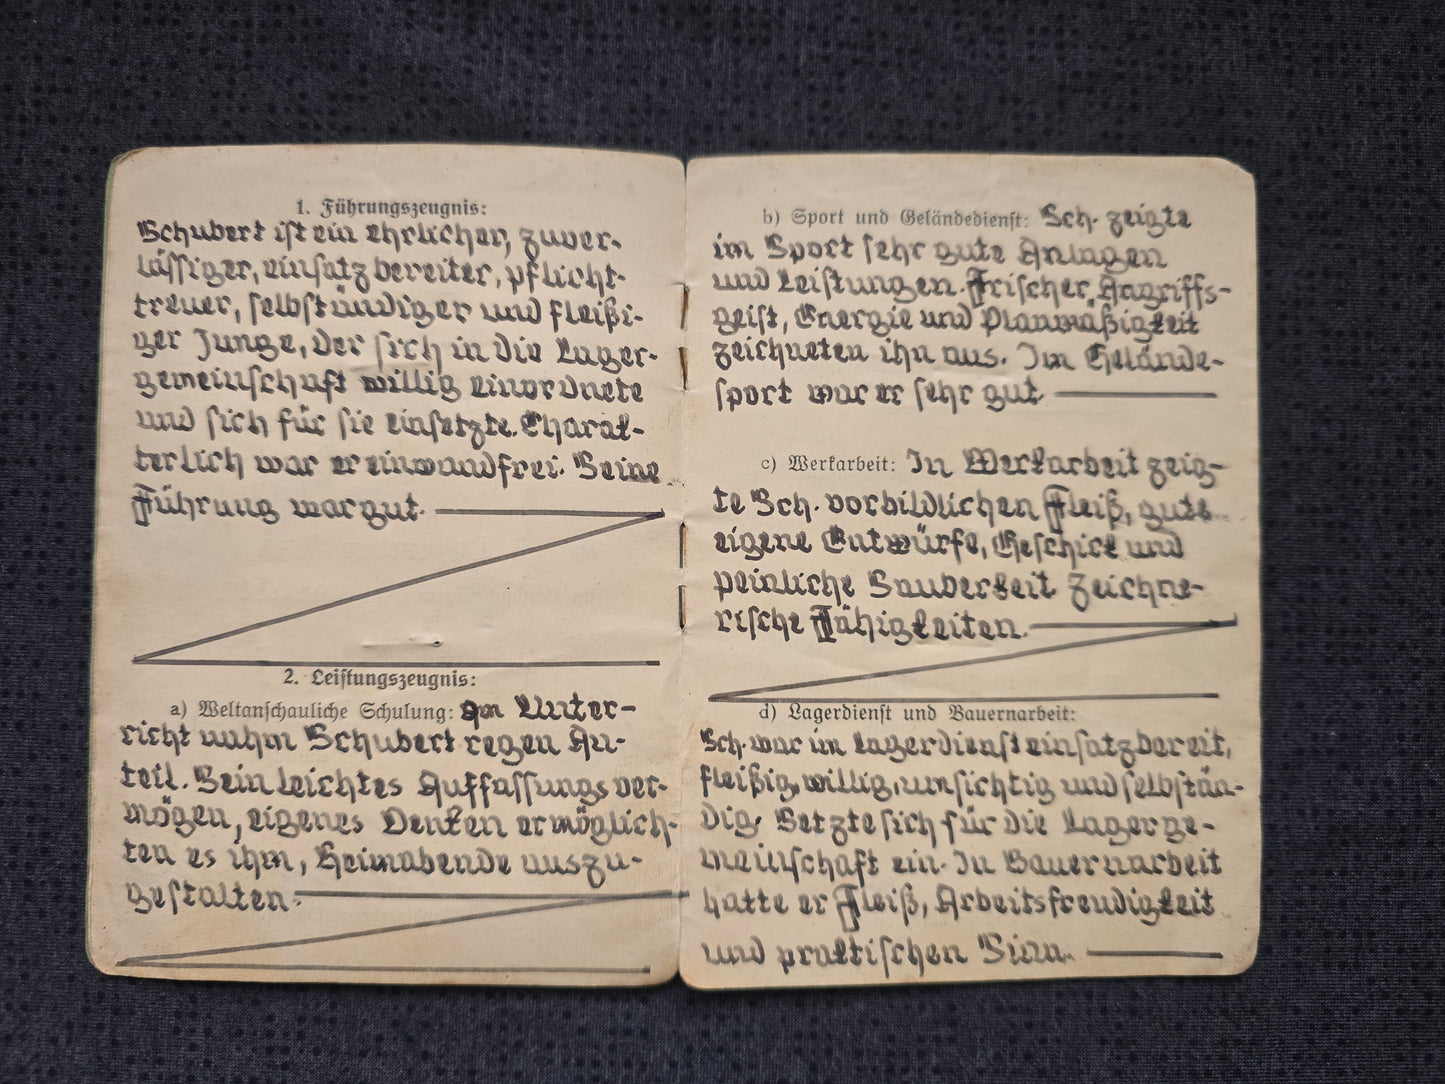 1. Führungszeugnis:
Schubert ist ein ehrlicher, zuver-
lässiger, einsatzbereiter, pflicht-
treuer, selbständiger und fleißi-
ger Junge, der sich in die Lager-
gemeinschaft willig einordnete
und sich für sie einsetzte. Charak-
terlich war er einwandfrei. Seine
Führung war gut.
2. Leistungszeugnis:
a) Weltanschauliche Schulung: Am Unter-
richt nahm Schubert regen An-
teil. Sein leichtes Auffassungsver-
mögen, eigenes Denken ermöglich-
ten es ihm, Heimabende auszu-
gestalten.
b) Sport und Geländedienst: Sch. zeigte
im Sport sehr gute Anlagen
und Leistungen. Frischer Angriffs-
geist, Energie und Planmäßigkeit
zeichneten ihn aus. Im Gelände-
sport war er sehr gut.
c) Werkarbeit: In Werkarbeit zeig-
te Sch. vorbildlichen Fleiß, gute
eigene Entwürfe, Geschick und
peinliche Sauberkeit zeichne-
rische Fähigkeiten.
d) Lagerdienst und Bauernarbeit:
Sch. war im Lagerdienst einsatzbereit,
fleißig, willig, umsichtig und selbstän-
dig. Setzte sich für die Lagerge-
meinschaft ein. In Bauernarbeit
hatte er Fleiß, Arbeitsfreudigkeit
und praktischen Sinn.